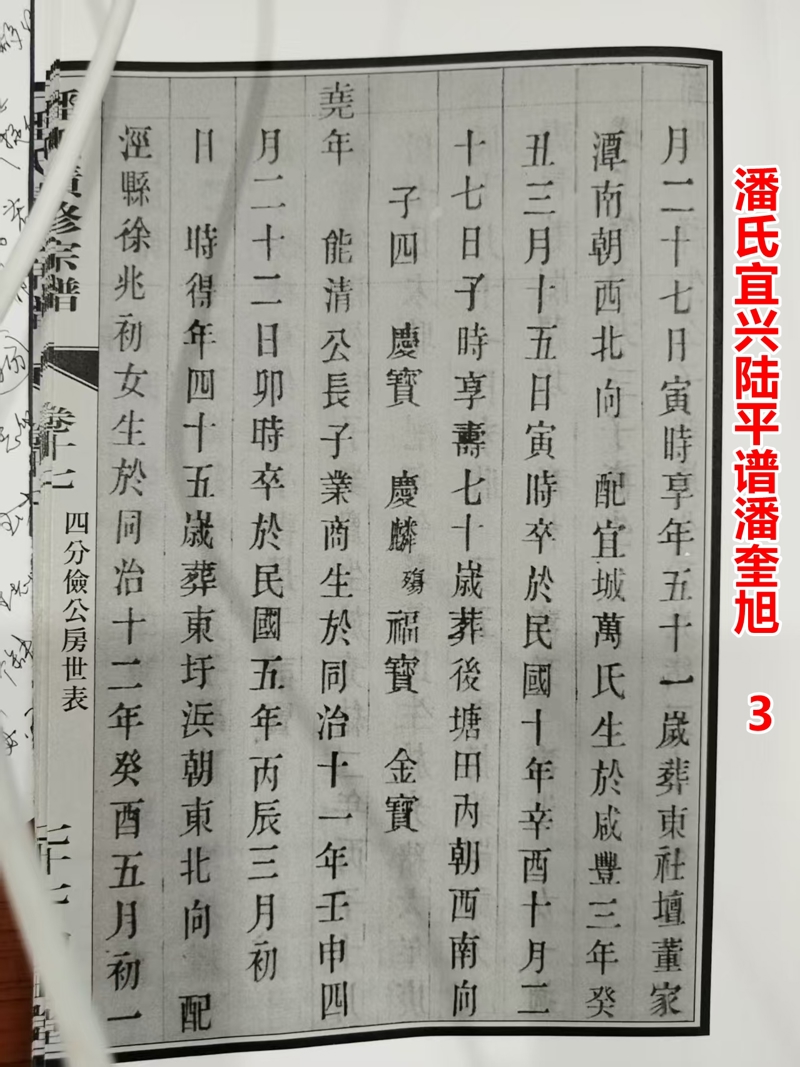 月二十七日寅時享年五十一歲葬東社壇董家
潭南朝西北向 配宜城萬氏生於咸豐三年癸
丑三月十五日寅時卒於民國十年辛酉十月二
十七日子時享壽七十歲葬後塘田內朝西南向
子四 慶寶 慶麟 殤 福寶 金寶
堯年 能清公長子業商生於同治十一年壬申四
月二十二日卯時卒於民國五年丙辰三月初
日 時得年四十五歲葬東圩浜朝東北向 配
涇縣徐兆初女生於同治十二年癸酉五月初一
修宗譜 卷十七 四分儉公房世表
潘氏宜兴陆平谱潘奎旭 3